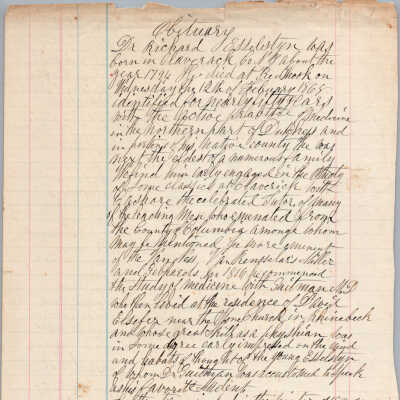 Obituary
Dr Richard Esselstyn was
born in Claverack Co NY about the
year 1796 He died at Redhook on
Wednesday 12th of February 1862
identified for nearly fifty years
with the active practice of Medicine
in the Northern part of Dutchess and
in portions of his Native county he was
next the eldest of a numerous family
We find him early engaged in the study
of some classics at Claverick with
the celebrated Tutor of many
of the leading Men who emanated from
the County of Columbia among whom
may be mentioned the more eminent
of the Van Renselars Miller
and in 1816 he commenced
the study of medicine with Quitman MD
who then lived at the residence of David
Elseffer near the Church in Rhinebeck
and whose great skill as a physician was
in some degree early impressed on the mind
and habits of thought of the young Esselstyn
of whom Dr Quitman was accustomed to speak
as his favorite student